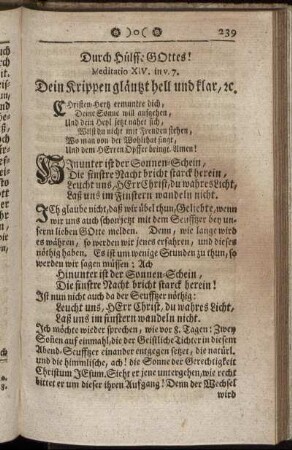 )o( 239
Durch Hülffe GOttes!
Meditatio XIV. in v. 7.
Dein Krippen gläntzt hell und klar, ꝛc.
Christen-Hertz ermuntre dich,
Deine Sonne will aufgehen,
Und dein Heyl jetzt nahet sich,
Wilst du nicht mit Freuden stehen,
Wo man von der Wohlthat singt,
Und dem HErren Opffer bringt. Amen!
Hinunter ist der Sonnen-Schein,
Die finstre Nacht bricht starck herein,
Leucht uns, HErr Christ, du wahres Licht,
Laß uns im finstern wandeln nicht.
ICh glaube nicht, daß wir übel thun, Geliebte, wenn
wir uns auch schon jetzt mit dem Seufftzer bey un-
serm lieben GOtte melden. Denn, wie lange wird
es währen, so werden wir jenes erfahren, und dieses
nöthig haben. Es ist um wenige Stunden zu thun, so
werden wir sagen müssen: Ach
Hinunter ist der Sonnen-Schein,
Die finstre Nacht bricht starck herein!
Ist nun nicht auch da der Seufftzer nöthig:
Leucht uns, HErr Christ, du wahres Licht,
Laß uns im finstern wandeln nicht.
Ich möchte wieder sprechen, wie vor 8. Tagen: Zwey
Sonnen auf einmahl, die der Geistliche Tichter in diesem
Abend-Seufftzer einander entgegen setzet, die natürl.
und die himmlische, ach! die Sonne der Gerechtigkeit
Christum JEsum. Sieht er jene untergehen, wie recht
bittet er um dieser ihren Aufgang! Denn der Wechsel
wird